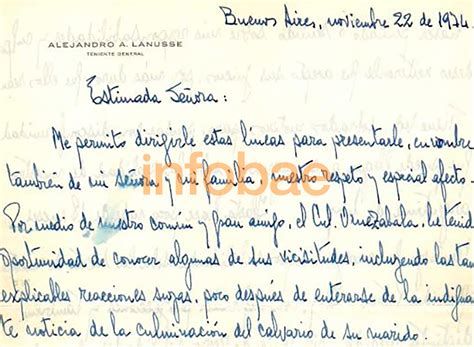 Buenos Aires, noviembre 22 de 1974.
ALEJANDRO A. LANUSSE
TENIENTE GENERAL
Estimada Señora:
Me permito dirigirle estas líneas para presentarle, en nombre
también de mi señora y mi familia, nuestro respeto y especial afecto.
infobae
Por medio de nuestro común y gran amigo, el Cnl. Ornezábala, he tenido
oportunidad de conocer algunas de sus vicisitudes, incluyendo las tan
explicables reacciones suyas, poco después de enterarse de la indignan
te noticia de la culminación del calvario de su marido.